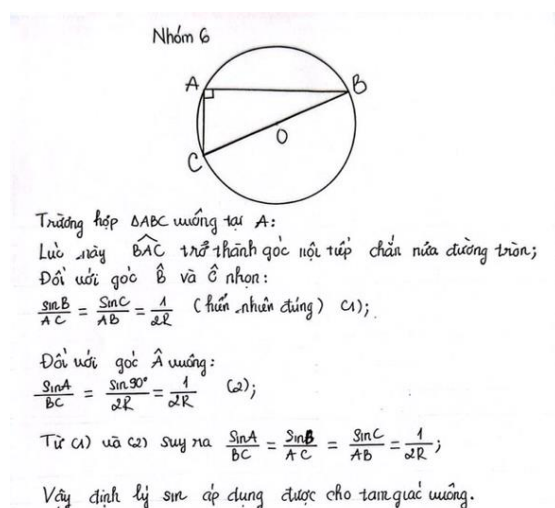 Nhóm 6
A
B
O
C
Trường hợp ΔABC vuông tại A:
Lúc này \widehat{BAC} trở thành góc nội tiếp chắn nửa đường tròn;
Đối với góc B̂ và Ĉ nhọn:
sinB/AC = SinC/AB = 1/2R (hiển nhiên đúng) (1);
Đối với góc Â vuông:
SinA/BC = sin90°/2R = 1/2R (2);
Từ (1) và (2) suy ra SinA/BC = SinB/AC = SinC/AB = 1/2R;
Vậy định lý sin áp dụng được cho tam giác vuông.